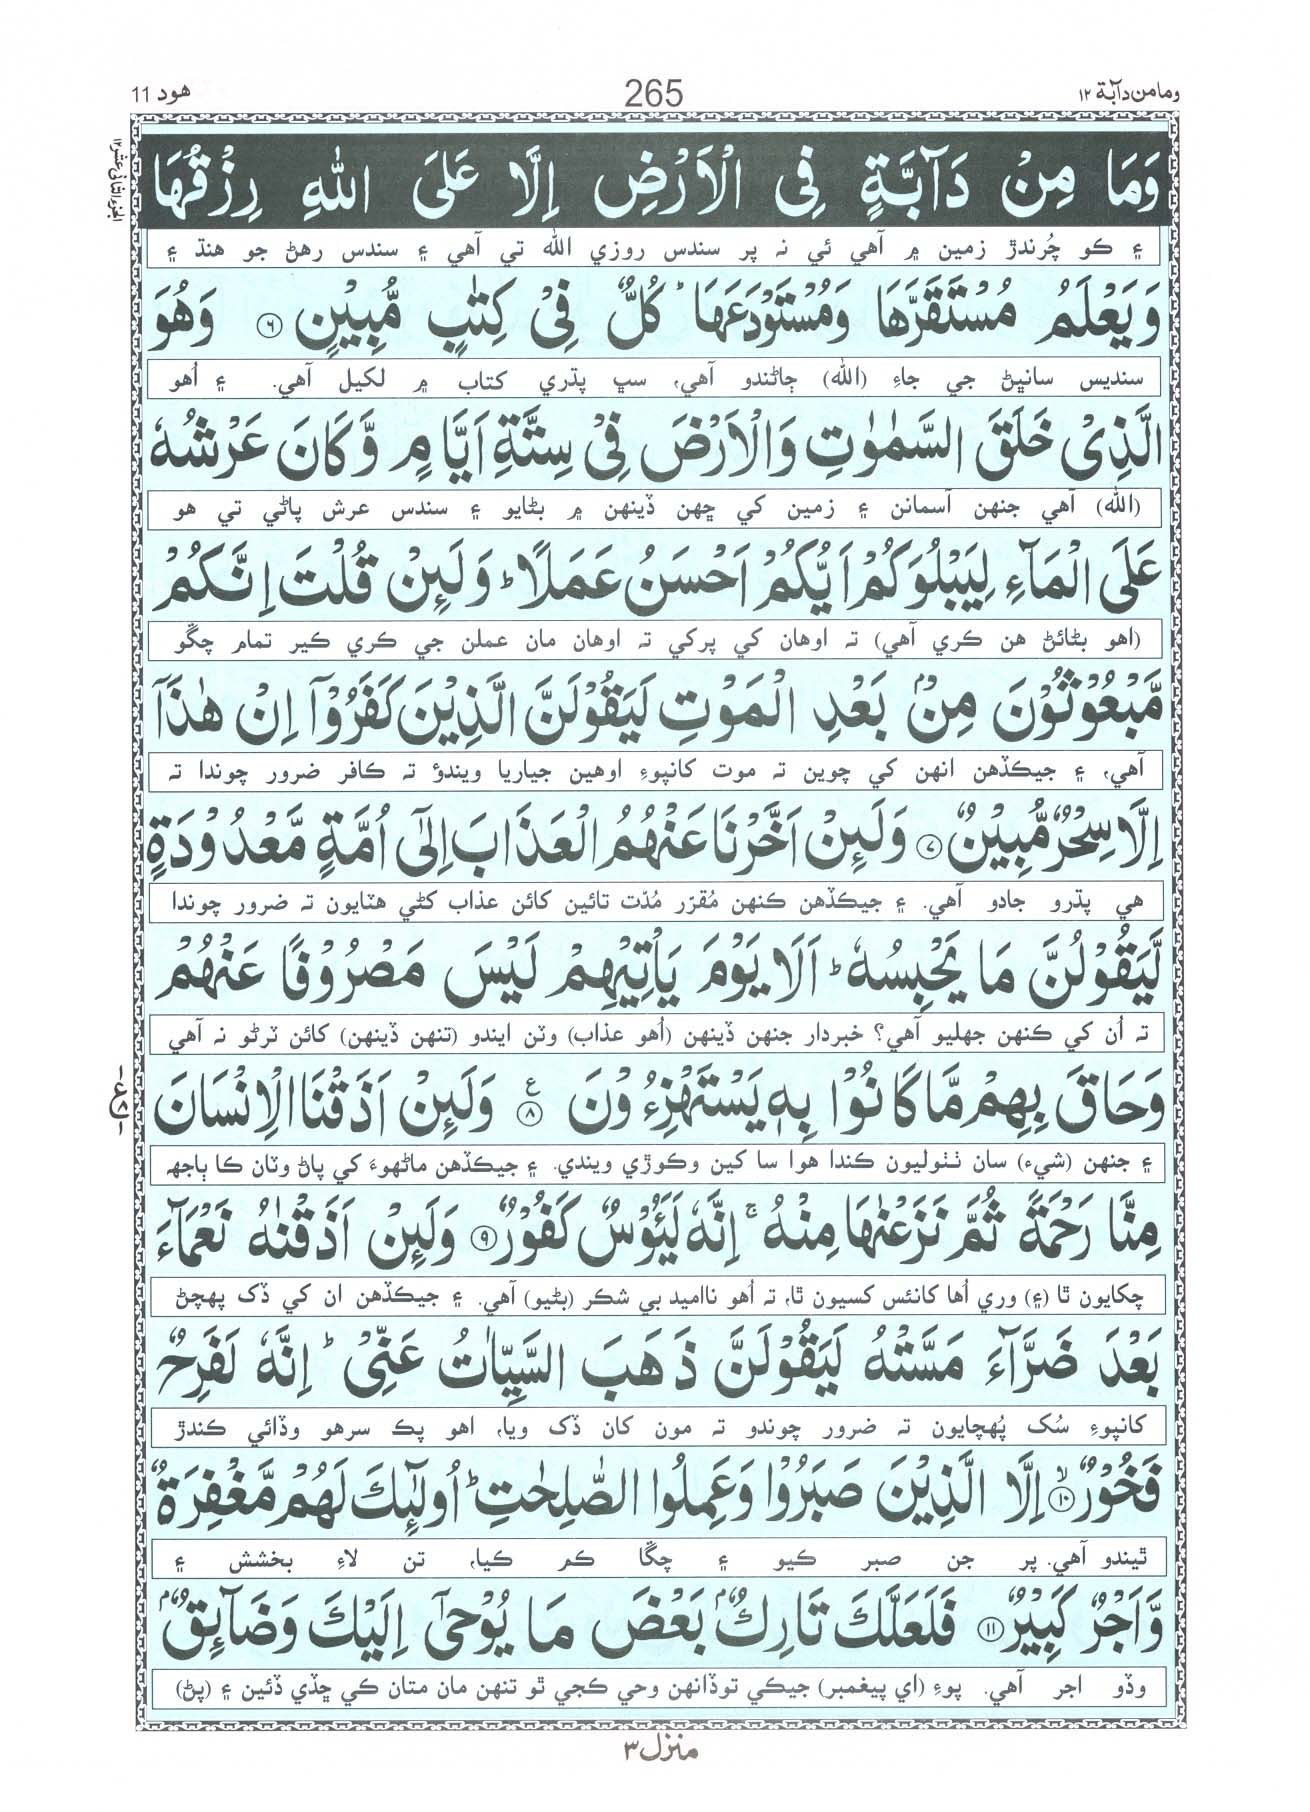 ومامن دآبة ١٢
265
هود 11
الجزء الثانی عشر ١٢
وَمَا مِنْ دَآبَّةٍ فِی الْاَرْضِ اِلَّا عَلَی اللّٰهِ رِزْقُهَا
۽ ڪو چُرندڙ زمين ۾ آهي ئي نہ پر سندس روزي الله تي آهي ۽ سندس رهڻ جو هنڌ ۽
وَیَعْلَمُ مُسْتَقَرَّهَا وَمُسْتَوْدَعَهَا ؕ كُلٌّ فِیْ كِتٰبٍ مُّبِیْنٍ ﴿٦﴾ وَهُوَ
سنديس سانڀڻ جي جاءِ (الله) ڄاڻندو آهي، سڀ پڌري ڪتاب ۾ لکيل آهي. ۽ اُهو
الَّذِیْ خَلَقَ السَّمٰوٰتِ وَالْاَرْضَ فِیْ سِتَّةِ اَیَّامٍ وَّكَانَ عَرْشُهٗ
(الله) آهي جنهن آسمانن ۽ زمين کي ڇهن ڏينهن ۾ بڻايو ۽ سندس عرش پاڻي تي هو
عَلَی الْمَآءِ لِیَبْلُوَكُمْ اَیُّكُمْ اَحْسَنُ عَمَلًا ؕ وَلَىِٕنْ قُلْتَ اِنَّكُمْ
(اهو بڻائڻ هن ڪري آهي) تہ اوهان کي پرکي تہ اوهان مان عملن جي ڪري ڪير تمام چڱو
مَّبْعُوْثُوْنَ مِنْۢ بَعْدِ الْمَوْتِ لَیَقُوْلَنَّ الَّذِیْنَ كَفَرُوْۤا اِنْ هٰذَاۤ
آهي، ۽ جيڪڏهن انهن کي چوين تہ موت کانپوءِ اوهين جياريا ويندؤ تہ ڪافر ضرور چوندا تہ
اِلَّا سِحْرٌ مُّبِیْنٌ ﴿٧﴾ وَلَىِٕنْ اَخَّرْنَا عَنْهُمُ الْعَذَابَ اِلٰۤی اُمَّةٍ مَّعْدُوْدَةٍ
هي پڌرو جادو آهي. ۽ جيڪڏهن ڪنهن مُقرّر مُدّت تائين کائن عذاب کڻي هٽايون تہ ضرور چوندا
لَّیَقُوْلُنَّ مَا یَحْبِسُهٗ ؕ اَلَا یَوْمَ یَاْتِیْهِمْ لَیْسَ مَصْرُوْفًا عَنْهُمْ
تہ اُن کي ڪنهن جھليو آهي؟ خبردار جنهن ڏينهن (اُهو عذاب) وٽن ايندو (تنهن ڏينهن) کائن ٽرڻو نہ آهي
وَحَاقَ بِهِمْ مَّا كَانُوْا بِهٖ یَسْتَهْزِءُوْنَ ﴿٨﴾ ع وَلَىِٕنْ اَذَقْنَا الْاِنْسَانَ
۽ جنهن (شيء) سان ٺٺوليون ڪندا هوا سا کين وڪوڙي ويندي. ۽ جيڪڏهن ماڻهوءَ کي پاڻ وٽان ڪا ٻاجهہ
مِنَّا رَحْمَةً ثُمَّ نَزَعْنٰهَا مِنْهُ ۚ اِنَّهٗ لَیَـُٔوْسٌ كَفُوْرٌ ﴿٩﴾ وَلَىِٕنْ اَذَقْنٰهُ نَعْمَآءَ
چکايون ٿا (۽) وري اُها کانئس کسيون ٿا، تہ اُهو نااميد بي شڪر (بڻيو) آهي. ۽ جيڪڏهن ان کي ڏک پهچڻ
بَعْدَ ضَرَّآءَ مَسَّتْهُ لَیَقُوْلَنَّ ذَهَبَ السَّیِّاٰتُ عَنِّیْ ؕ اِنَّهٗ لَفَرِحٌ
کانپوءِ سُک پُهچايون تہ ضرور چوندو تہ مون کان ڏک ويا، اهو پڪ سرهو وڏائي ڪندڙ
فَخُوْرٌ ﴿١٠﴾ ۙ اِلَّا الَّذِیْنَ صَبَرُوْا وَعَمِلُوا الصّٰلِحٰتِ ؕ اُولٰٓىِٕكَ لَهُمْ مَّغْفِرَةٌ
ٿيندو آهي. پر جن صبر ڪيو ۽ چڱا ڪم ڪيا، تن لاءِ بخشش ۽
وَّاَجْرٌ كَبِیْرٌ ﴿١١﴾ فَلَعَلَّكَ تَارِكٌۢ بَعْضَ مَا یُوْحٰۤی اِلَیْكَ وَضَآىِٕقٌۢ
وڏو اجر آهي. پوءِ (اي پيغمبر) جيڪي توڏانهن وحي ڪجي ٿو تنهن مان متان ڪي ڇڏي ڏئين ۽ (پڻ)
منزل ٣